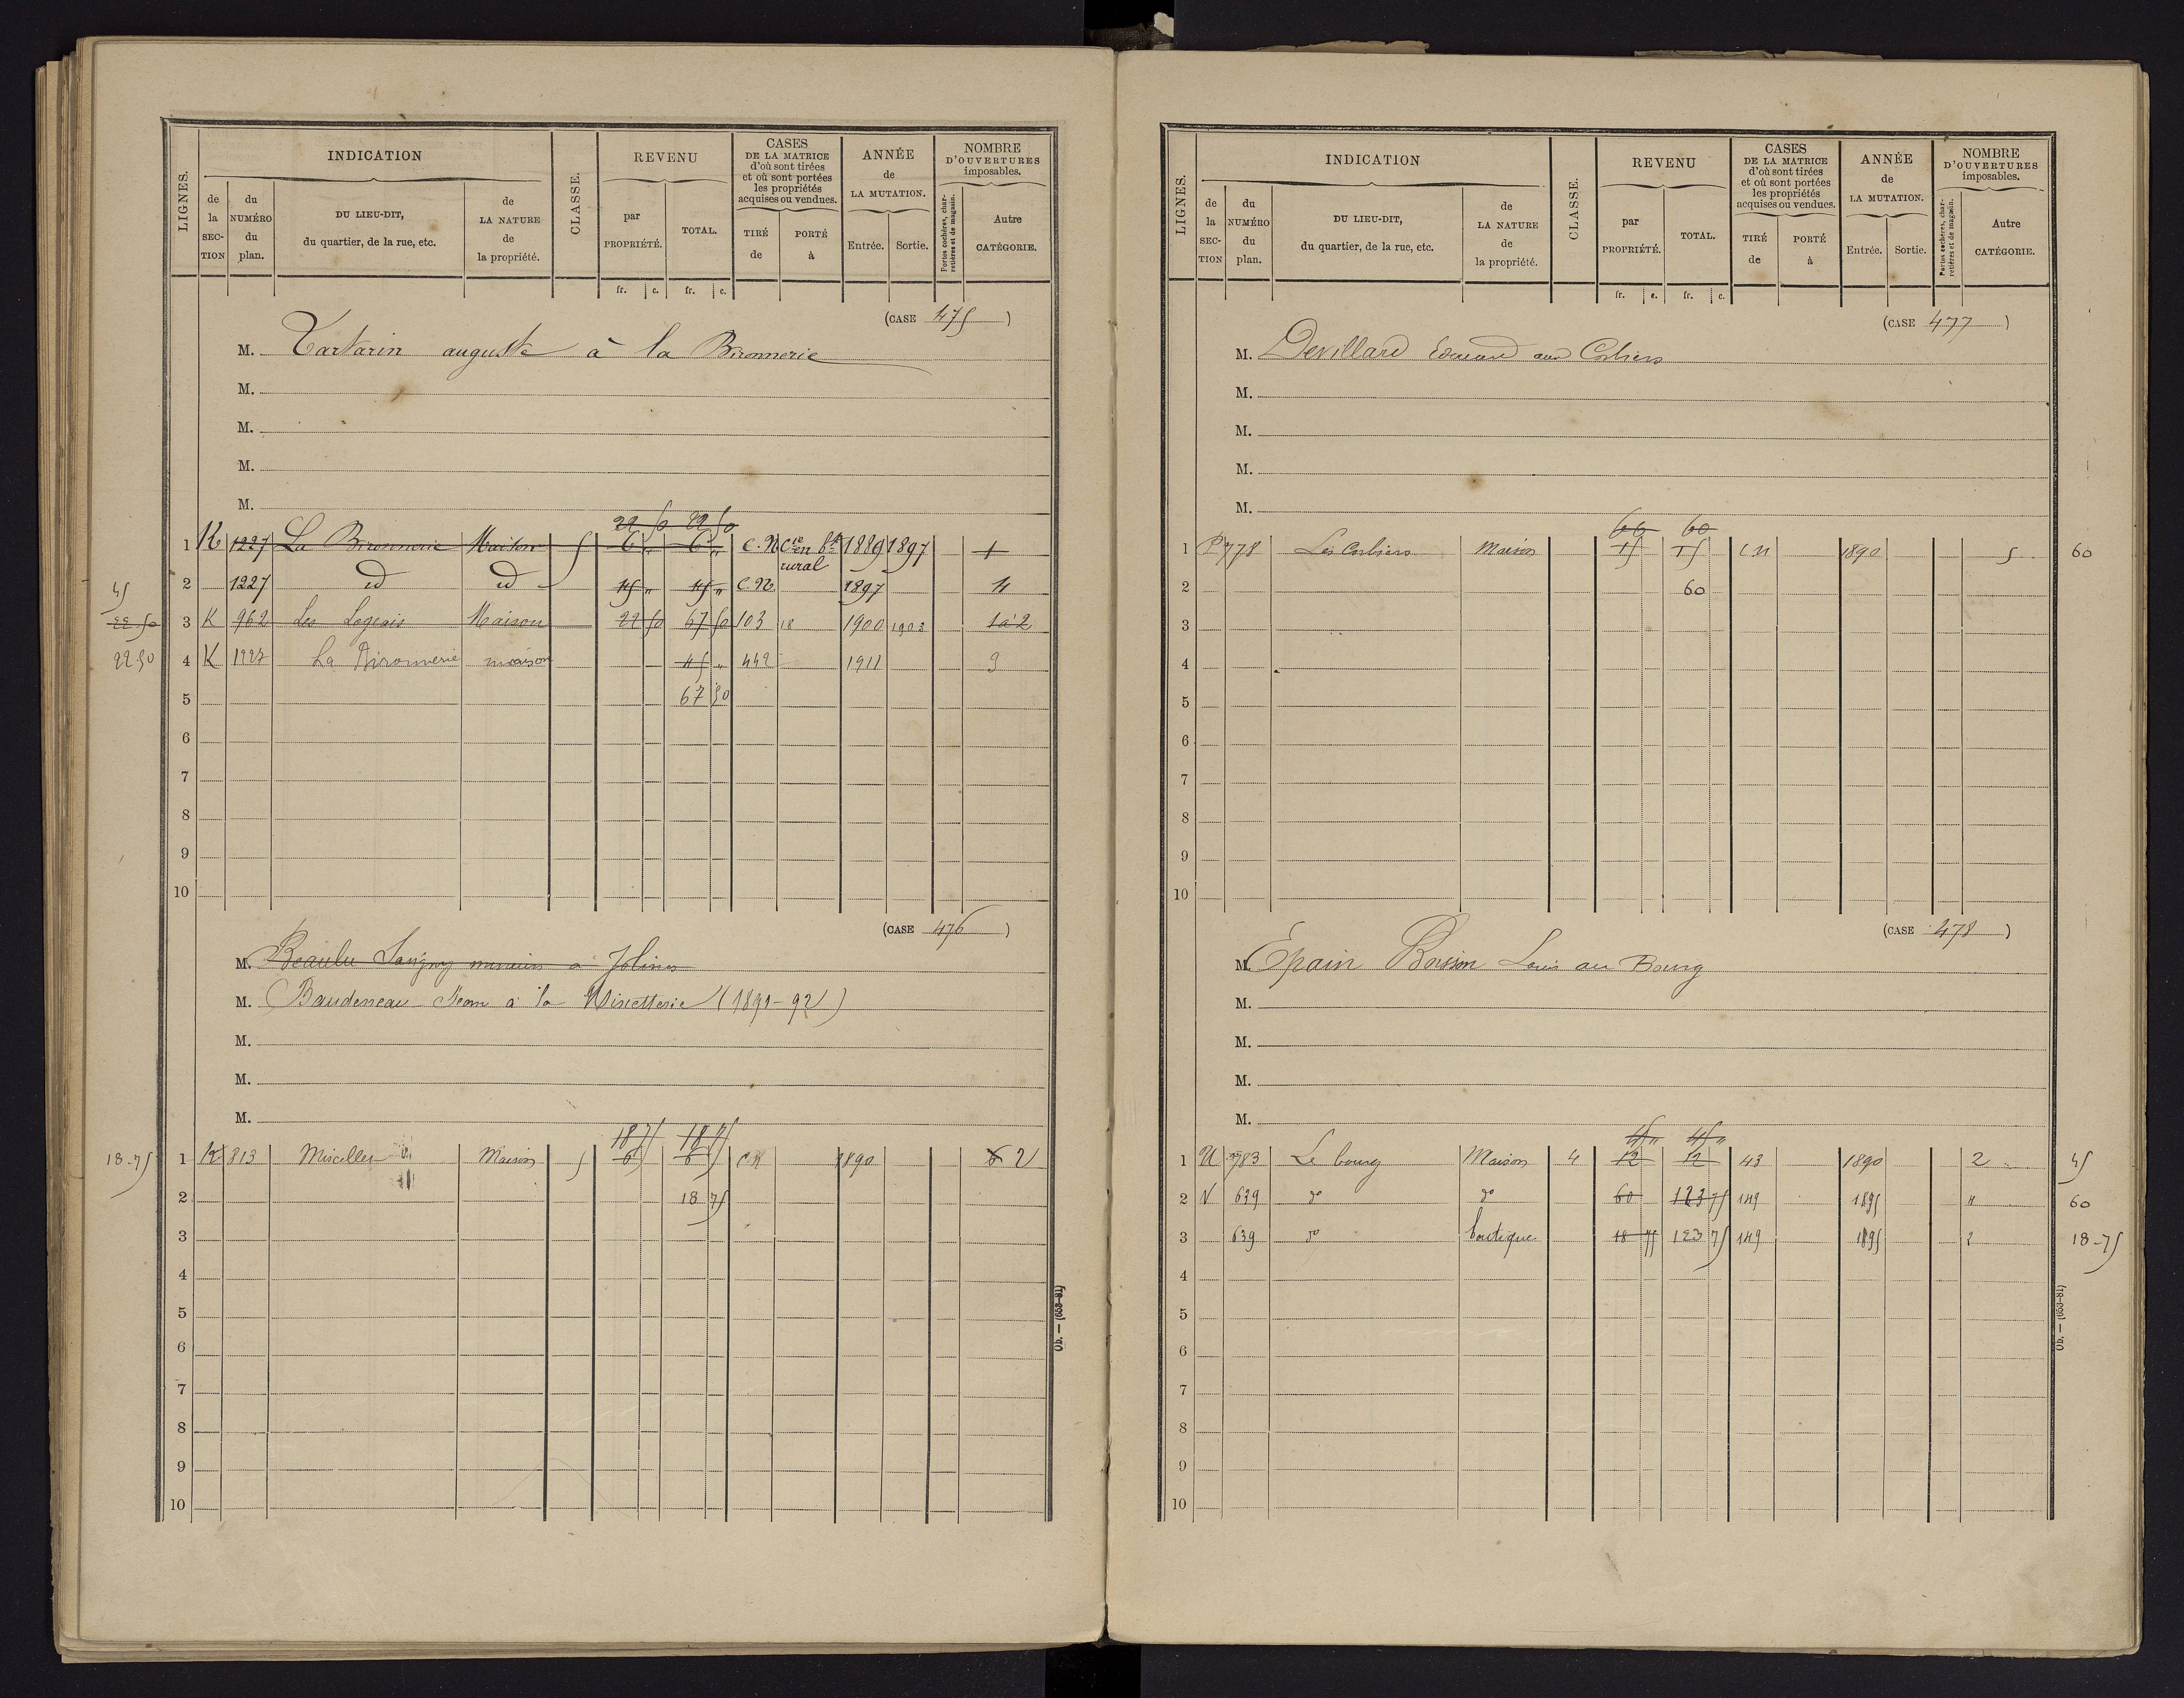 LIGNES. INDICATION CLASSE. REVENU CASES DE LA MATRICE d'où sont tirées et où sont portées les propriétés acquises ou vendues. ANNÉE de LA MUTATION. NOMBRE D'OUVERTURES imposables.
de la SEC-TION du NUMÉRO du plan. DU LIEU-DIT, du quartier, de la rue, etc. de LA NATURE de la propriété. par PROPRIÉTÉ. TOTAL. TIRÉ de PORTÉ à Entrée. Sortie. Portes cochères, charretières et de magasin. Autre CATÉGORIE.
fr. c. fr. c.
(CASE 475)
M. Tartarin auguste à la Bironnerie
M.
M.
M.
M.
22 50 22 50
1 K 1227 La Bironnerie Maison 5 6 " 6 " C.N Cion en bt rural 1889 1897 1
45 2 1227 id id 45 " 45 " C.N 1897 4
22 50 3 K 962 Les Logeais Maison 22 50 67 50 103 18 1900 1903 1à2
22.50 4 K 1227 La Bironnerie maison 45 " 442 1911 3
5 67 50
6
7
8
9
10
(CASE 476)
M. Beaulu Savigny à Jolines
M. Baudeneau Jean à la (1891-92)
M.
M.
M.
18 75 18 75
18-75 1 K 813 Maison 5 6 6 C.N 1890 6 2
2 18 75
3
4
5
6
7
8
9
10
Ob. — (653-81)
LIGNES. INDICATION CLASSE. REVENU CASES DE LA MATRICE d'où sont tirées et où sont portées les propriétés acquises ou vendues. ANNÉE de LA MUTATION. NOMBRE D'OUVERTURES imposables.
de la SEC-TION du NUMÉRO du plan. DU LIEU-DIT, du quartier, de la rue, etc. de LA NATURE de la propriété. par PROPRIÉTÉ. TOTAL. TIRÉ de PORTÉ à Entrée. Sortie. Portes cochères, charretières et de magasin. Autre CATÉGORIE.
fr. c. fr. c.
(CASE 477)
M. Devillard Edouard aux Corbiers
M.
M.
M.
M.
60 60
1 P 778 Les Corbiers Maison 15 15 C N 1890 5 60
2 60
3
4
5
6
7
8
9
10
(CASE 478)
M. Epain Boisson Louis au Bourg
M.
M.
M.
M.
45 " 45 "
1 U 783 Le bourg Maison 4 12 12 43 1890 2 45
2 N 639 do do 60 123 75 149 1895 4 60
3 639 do boutique 18 75 123 75 149 1895 2 18-75
4
5
6
7
8
9
10
Ob. — (653-81)